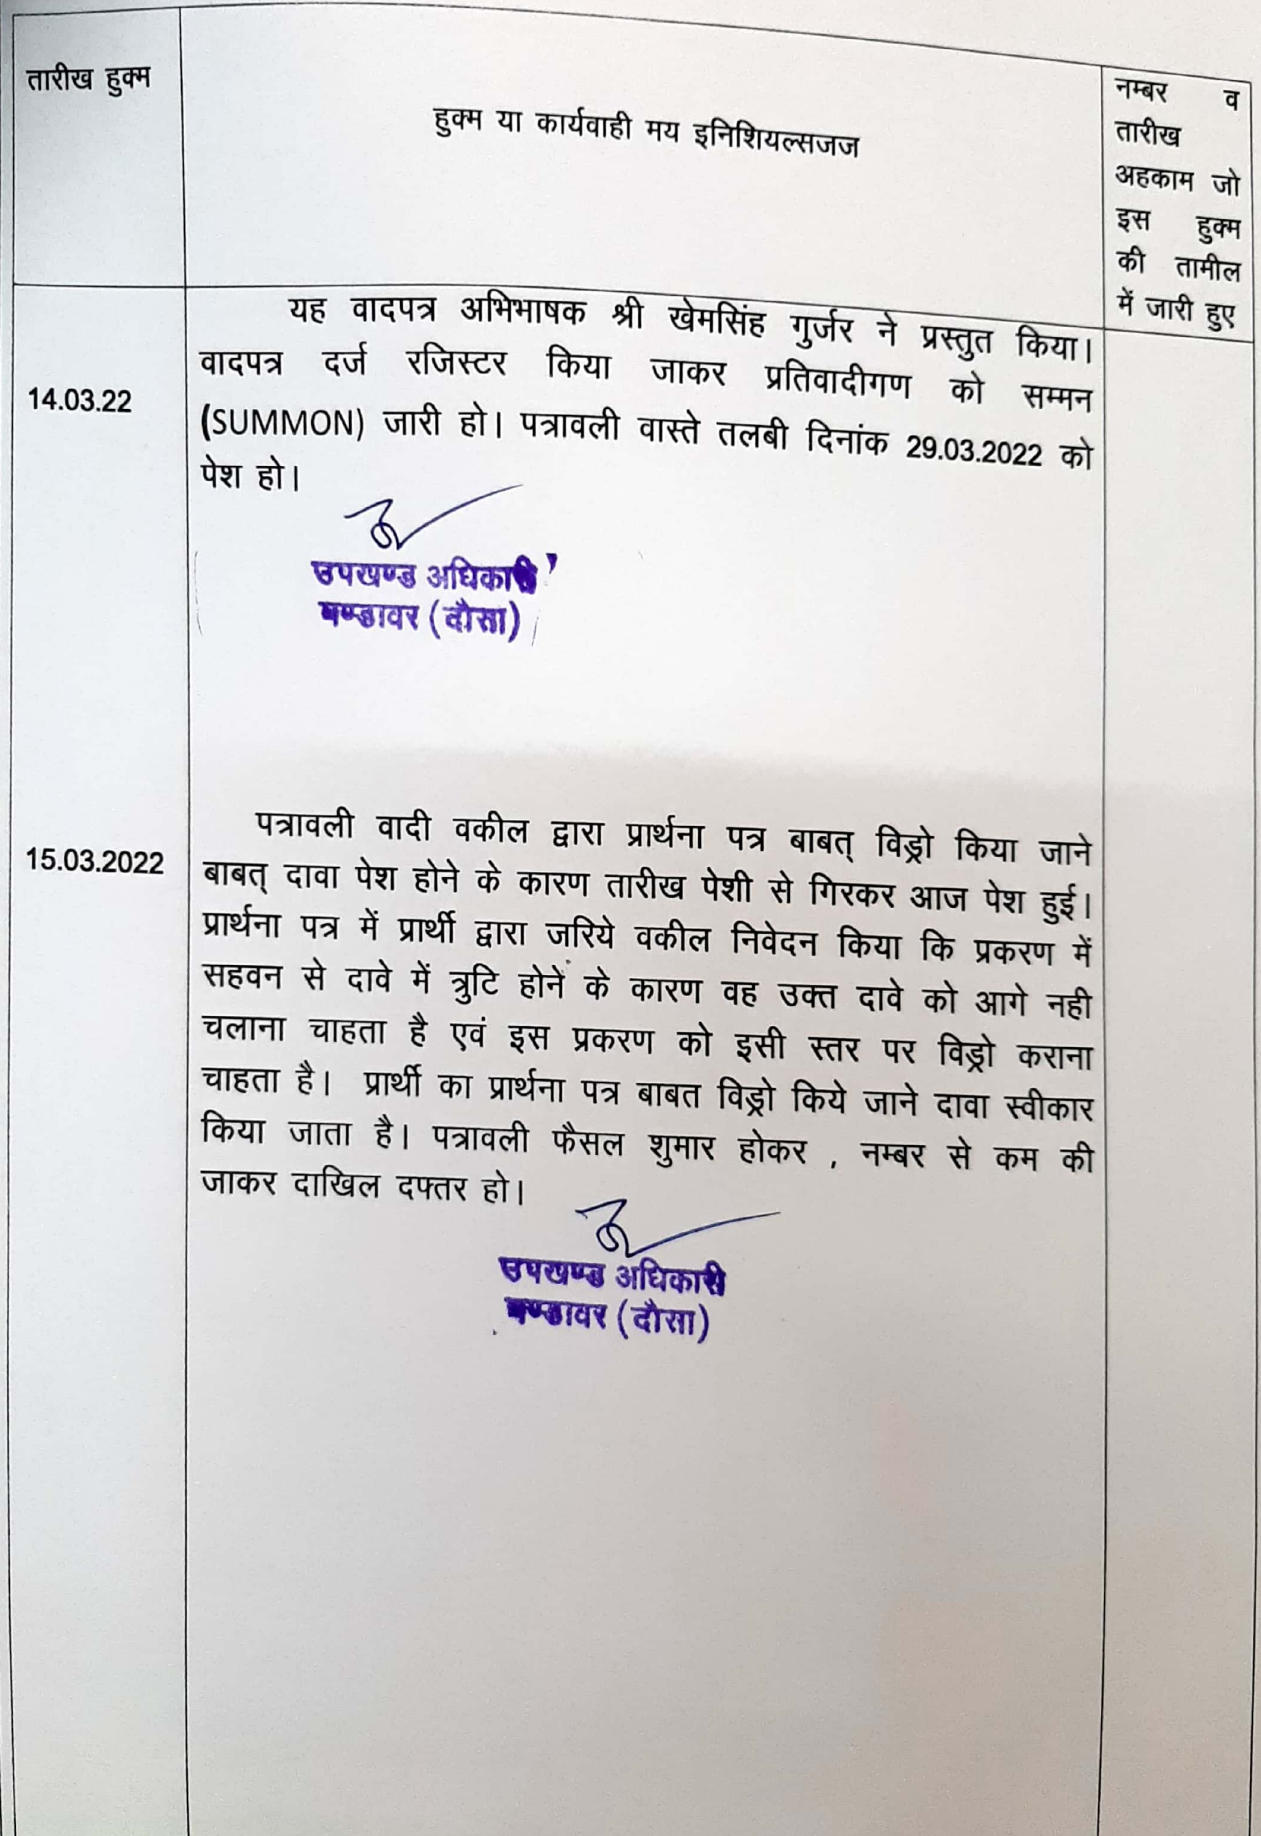 तारीख हुक्म
हुक्म या कार्यवाही मय इनिशियल्सजज
नम्बर व
तारीख
अहकाम जो
इस हुक्म
की तामील
में जारी हुए
14.03.22
यह वादपत्र अभिभाषक श्री खेमसिंह गुर्जर ने प्रस्तुत किया।
वादपत्र दर्ज रजिस्टर किया जाकर प्रतिवादीगण को सम्मन
(SUMMON) जारी हो। पत्रावली वास्ते तलबी दिनांक 29.03.2022 को
पेश हो।
उपखण्ड अधिकारी
मण्डावर (दौसा)
15.03.2022
पत्रावली वादी वकील द्वारा प्रार्थना पत्र बाबत् विड्रो किया जाने
बाबत् दावा पेश होने के कारण तारीख पेशी से गिरकर आज पेश हुई।
प्रार्थना पत्र में प्रार्थी द्वारा जरिये वकील निवेदन किया कि प्रकरण में
सहवन से दावे में त्रुटि होनें के कारण वह उक्त दावे को आगे नही
चलाना चाहता है एवं इस प्रकरण को इसी स्तर पर विड्रो कराना
चाहता है। प्रार्थी का प्रार्थना पत्र बाबत विड्रो किये जाने दावा स्वीकार
किया जाता है। पत्रावली फैसल शुमार होकर , नम्बर से कम की
जाकर दाखिल दफ्तर हो।
उपखण्ड अधिकारी
मण्डावर (दौसा)